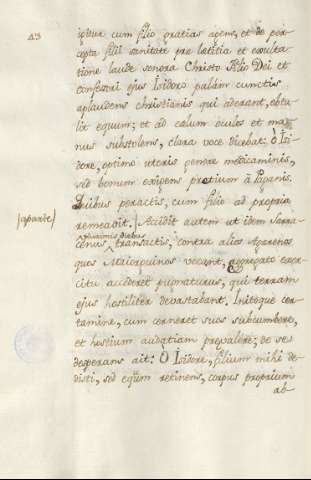 43
igitur cum filio gratias agens, et de per-
cepta filii sanitate præ lætitia et exulta-
tione laude sonora Christo Filio Dei et
confessori ejus Isidoro palàm cunctis
aplaudens christianis qui aderant, obtu-
lit equum; et ad cælum oculos et ma-
nus substolens, clara voce dicebat: O Isi-
dore, optimo uteris genere medicaminis,
sed bonum exigens pretium à Paganis.
Quibus peractis, cum filio ad propria
|aparte| remeavit. Accidit autem ut idem Sarra-
plurimis diebus
cenus transactis, contra alios Agarenos
quos Maiorquinos vocant, aggregato exer-
citu accederet pugnaturus, qui terram
ejus hostiliter devastabant. Initoque cer-
tamine, cum cerneret suos subcumbere,
et hostium audatiam prevalere; de se
desperans ait: O Isidore, filium mihi de-
disti, sed equum retinens, corpus proprium
ab